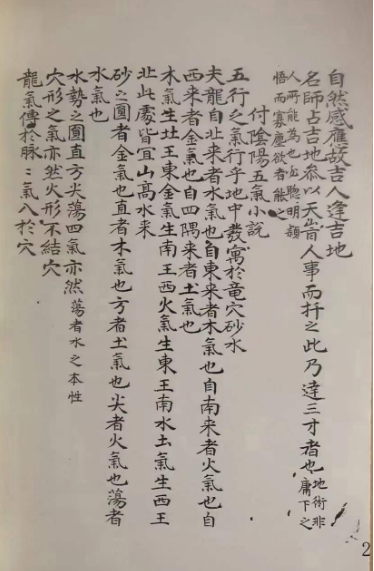 自然感應故吉人逢吉地
名師占吉地叅以天旹人事而扞之此乃達三才者也地術非庸下之
人所能為也必聰明穎悟而寡塵欲者能之
付陰陽五氣小說
五行之氣行乎地中發寓於竜穴砂水
夫龍自北來者水氣也自東来者木氣也自南来者火氣也自
西来者金氣也自四隅来者土氣也
木氣生北王東金氣生南王西火氣生東王南水土氣生西王
北此處皆宜山高水来
砂之圓者金氣也直者木氣也方者土氣也尖者火氣也蕩者
水氣也
水勢之圓直方尖蕩四氣亦然蕩者水之本性
穴形之氣亦然火形不結穴
龍氣傳於脉〻氣入於穴
2